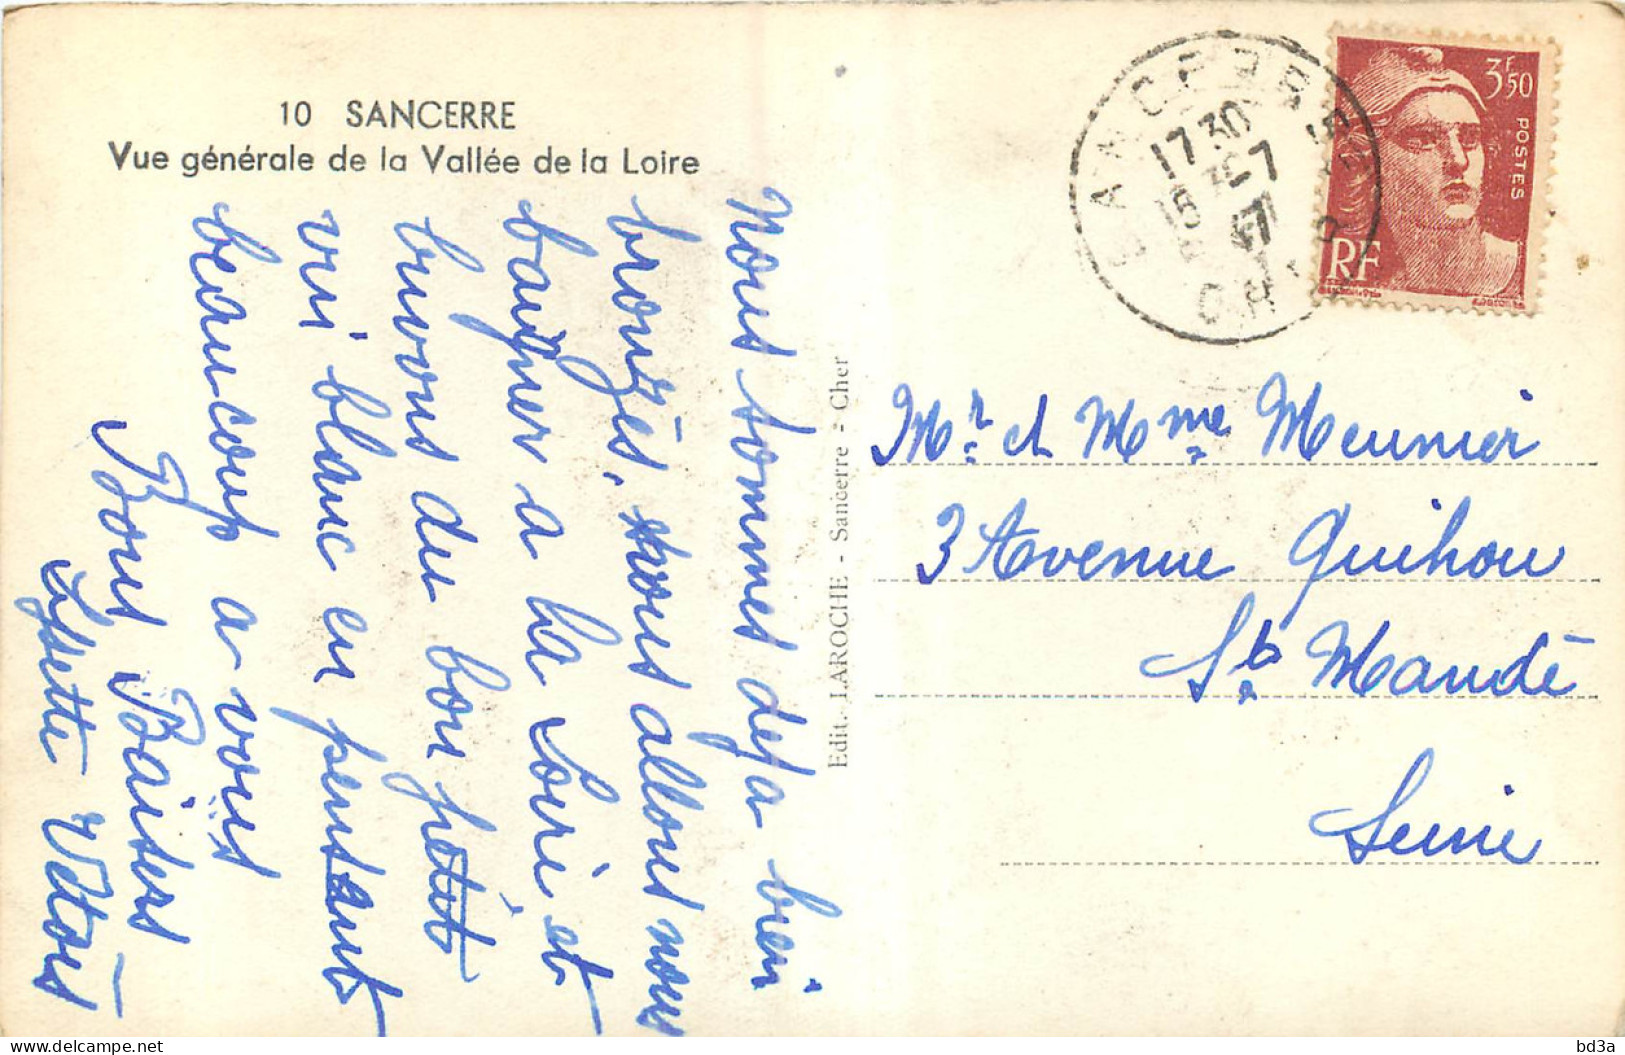 10 SANCERRE
Vue générale de la Vallée de la Loire
Nous sommes deja bien
bronzés, nous allons nous
baigner a la Loire et
buvons du bon petit
vin blanc en pensant
beaucoup a vous
Bons Baisers
Lysette
Edit. LAROCHE - Sancerre - Cher
SANCERRE
17 30
15 -7
47
CHER
3F50
POSTES
RF
Mr. et Mme Meunier
3 Avenue Quihou
St Mandé
Seine
bd3a